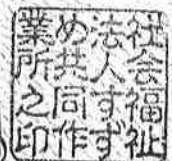 社会福祉
法人すず
め共同作
業所之印